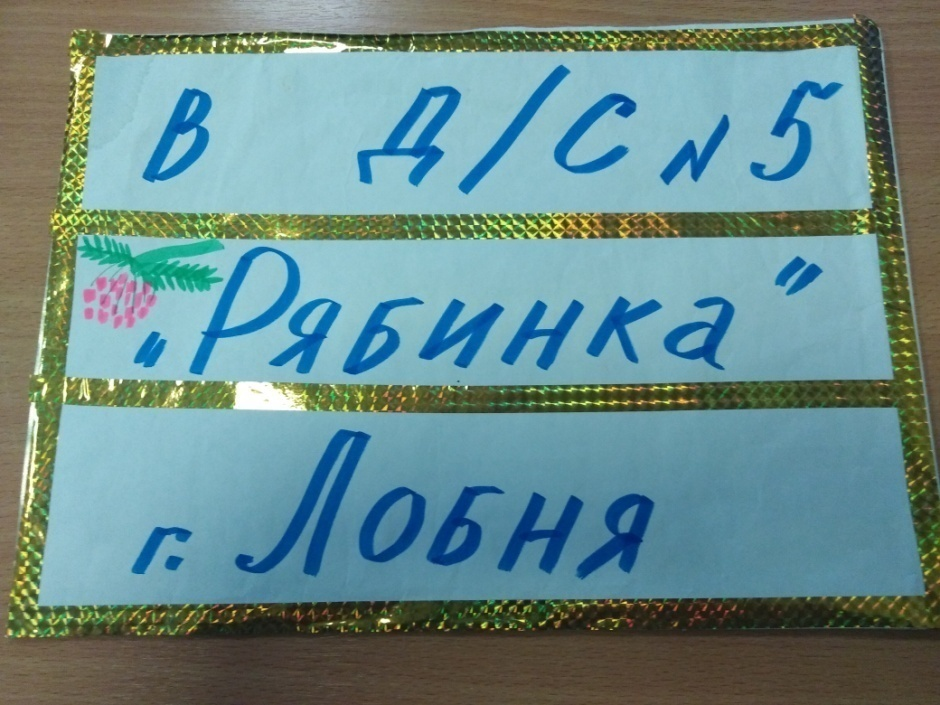 В Д/С N 5
„Рябинка"
г. Лобня